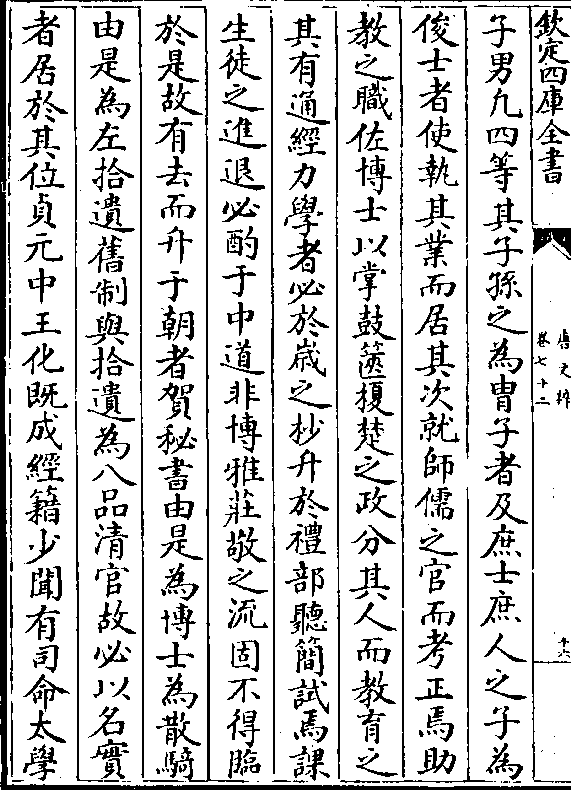 欽定四庫全書
唐文粹
卷七十二
十六
子男凡四等其子孫之為胄子者及庶士庶人之子為
俊士者使執其業而居其次就師儒之官而考正焉助
教之職佐博士以掌鼓篋榎楚之政分其人而教育之
其有通經力學者必於歳之杪升於禮部聽簡試焉課
生徒之進退必酌于中道非博雅莊敬之流固不得臨
於是故有去而升于朝者賀秘書由是為博士為散騎
由是為左拾遺舊制與拾遺為八品清官故必以名實
者居於其位貞元中王化既成經籍少聞有司命太學